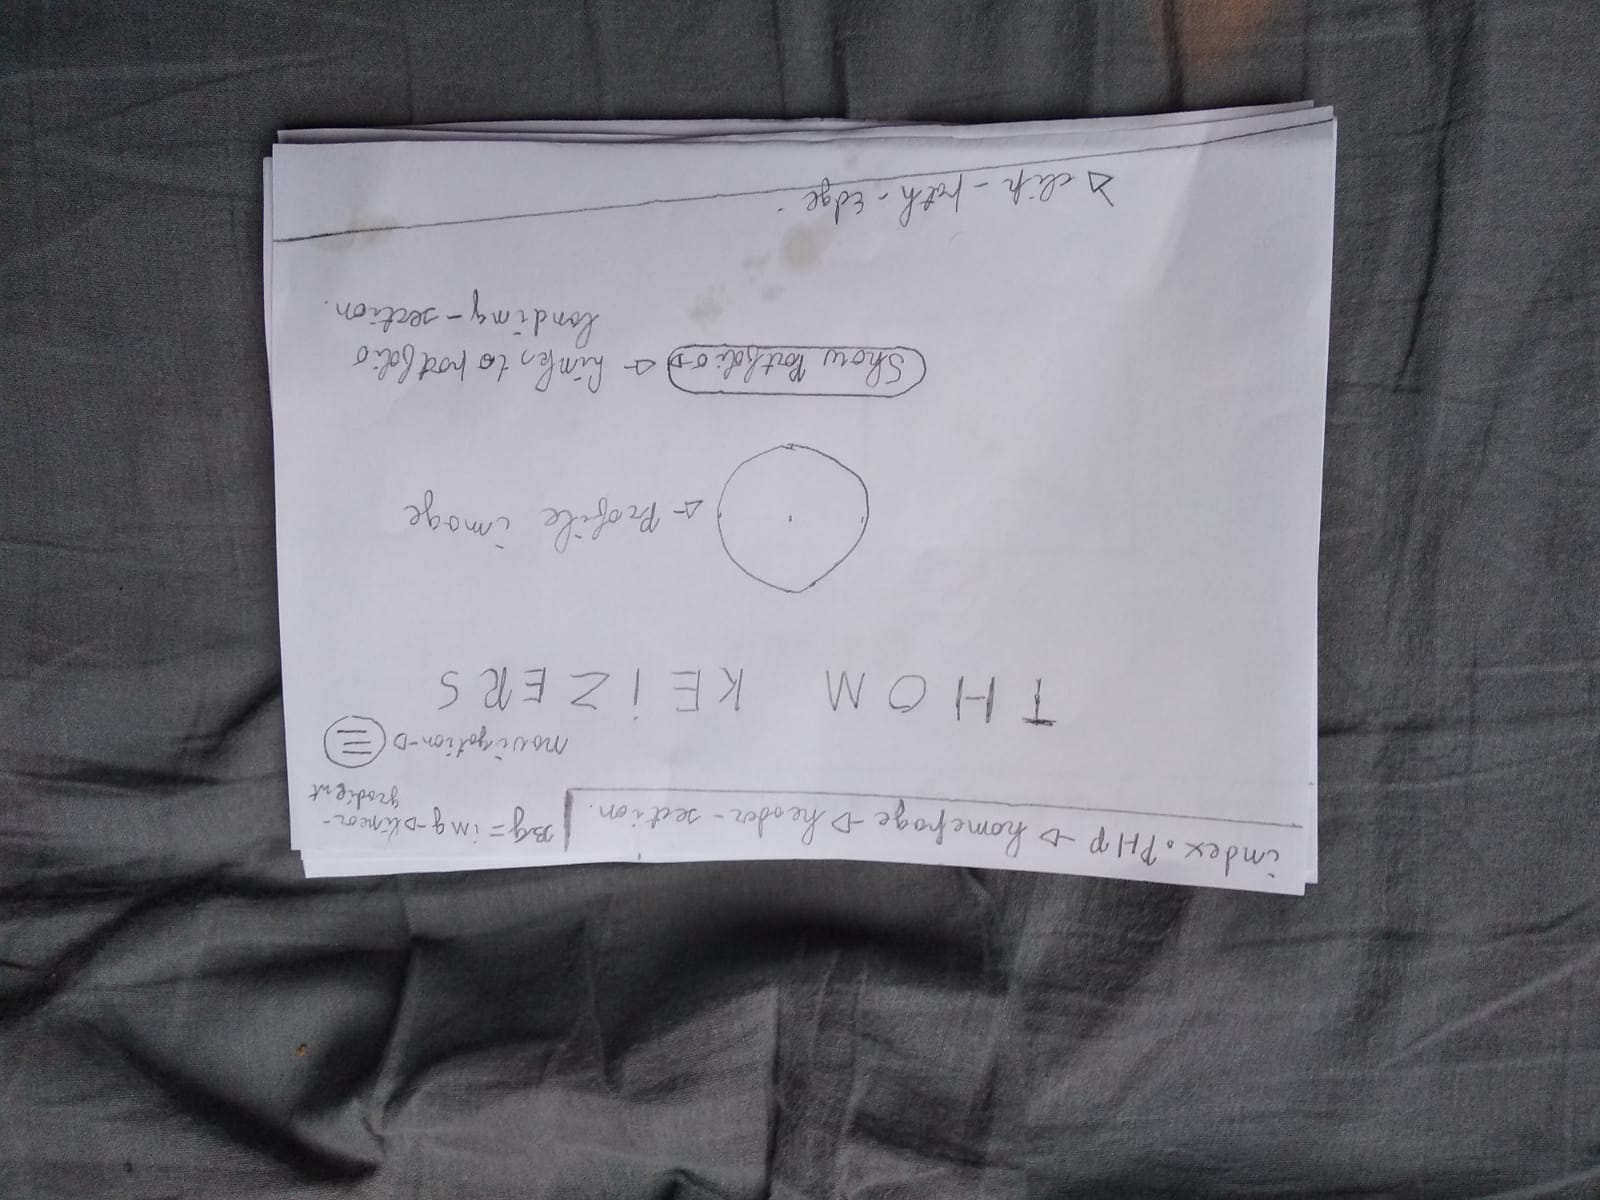 index.PHP → homepage → header-section.
BG = img → linear-
gradient
navigation →
THOM KEIZERS
← Profile image
Show Portfolio → ← Links to portfolio
landing-section.
↘ clip-path-edge.